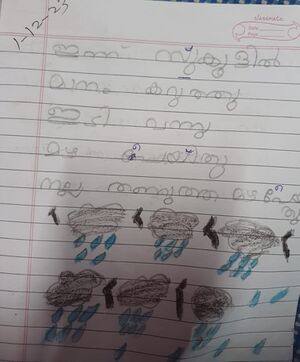 classmate
Date
Page
1-12-23
ഇന്ന് സ്കൂളിൽ
മാനം കറുത്തു
ഇടി വന്നു
മഴ പെയ്തു
നല്ല തണുത്ത മഴ പെയ
തു